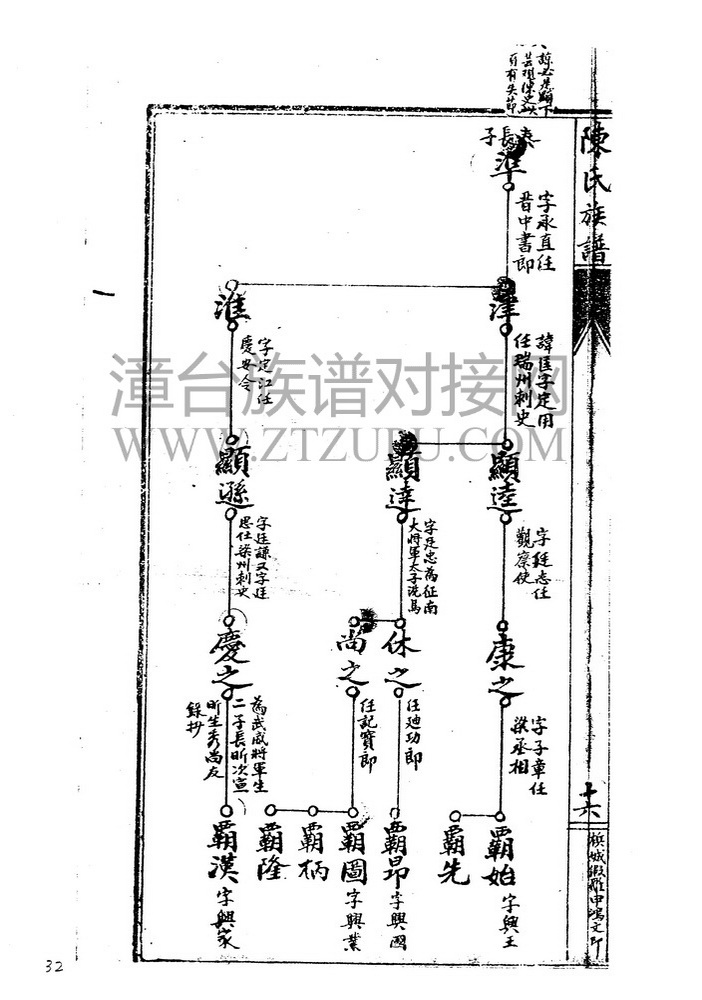 陳氏族譜
十六
長子
準
字永直任
晋中書郎
津
諱匡字定用
任瑞州刺史
淮
字定江任
慶安令
顯逵
字廷志任
觀察使
顯達
字廷忠為征南
大將軍太子洗馬
顯遜
字廷謙又字廷
思仕梁州刺史
康之
字子章任
梁丞相
休之
任迪功郎
尚之
任記室郎
慶之
為武威將軍生
二子長昕次宣
昕生秀尚友
錄抄
霸始
字興王
霸先
霸昂
字興國
霸圖
字興業
霸柄
霸隆
霸漢
字興家
漳台族谱对接网
WWW.ZTZUPU.COM
32